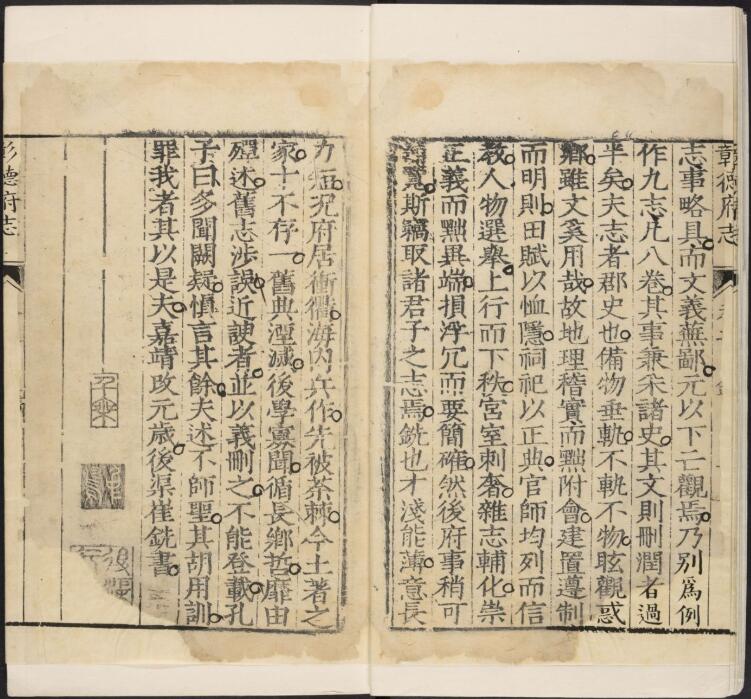 彰德府志
志事略具而文義蕪鄙元以下亡觀焉乃別為例
作九志凡八卷其事兼采諸史其文則刪潤者過
半矣夫志者郡史也備物垂軌不軌不物眩觀惑
鄉雖文奚用哉故地理稽實而黜附會建置遵制
而明則田賦以恤隱祠祀以正典官師均列而信
教人物選舉上行而下秩宮室刺奢雜志輔化崇
正義而黜異端損浮冗而要簡確然後府事稍可
覽斯竊取諸君子之志焉銑也才淺能薄意長
力短況府居衝衢海內兵作先被荼棘今土著之
家十不存一舊典湮滅後學寡聞循長鄉哲靡由
殫述舊志涉誤近諛者並以義刪之不能登載孔
子曰多聞闕疑慎言其餘夫述不師聖其胡用訓
罪我者其以是夫嘉靖改元歲後渠崔銑書
彰德府志